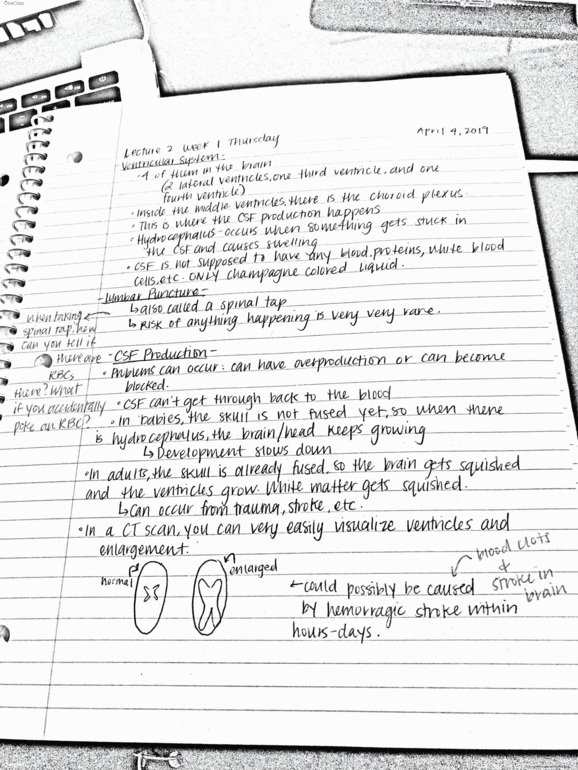 OneClass
April 4, 2019
Lecture 2 Week 1 Thursday
Ventricular System-
-4 of them in the brain
(2 lateral ventricles, one third ventricle, and one
fourth ventricle)
• Inside the middle ventricles, there is the choroid plexus.
• This is where the CSF production happens
• Hydrocephalus- occurs when something gets stuck in
the CSF and causes swelling
• CSF is not supposed to have any blood, proteins, white blood
cells, etc. ONLY champagne colored liquid.
-Lumbar Puncture-
↳ also called a spinal tap
↳ Risk of anything happening is very very rare.
when taking
spinal tap, how
can you tell if
there are
RBCs
there? What
if you accidentally
poke an RBC?
-CSF Production-
• Problems can occur: can have overproduction or can become
blocked.
• CSF can't get through back to the blood
• In babies, the skull is not fused yet, so when there
is hydrocephalus, the brain/head keeps growing
↳ Development slows down
• In adults, the skull is already fused, so the brain gets squished
and the ventricles grow. White matter gets squished.
↳ Can occur from trauma, stroke, etc.
• In a CT scan, you can very easily visualize ventricles and
enlargement.
normal
enlarged
← could possibly be caused
by hemorragic stroke within
hours-days.
blood clots
+
stroke in
brain